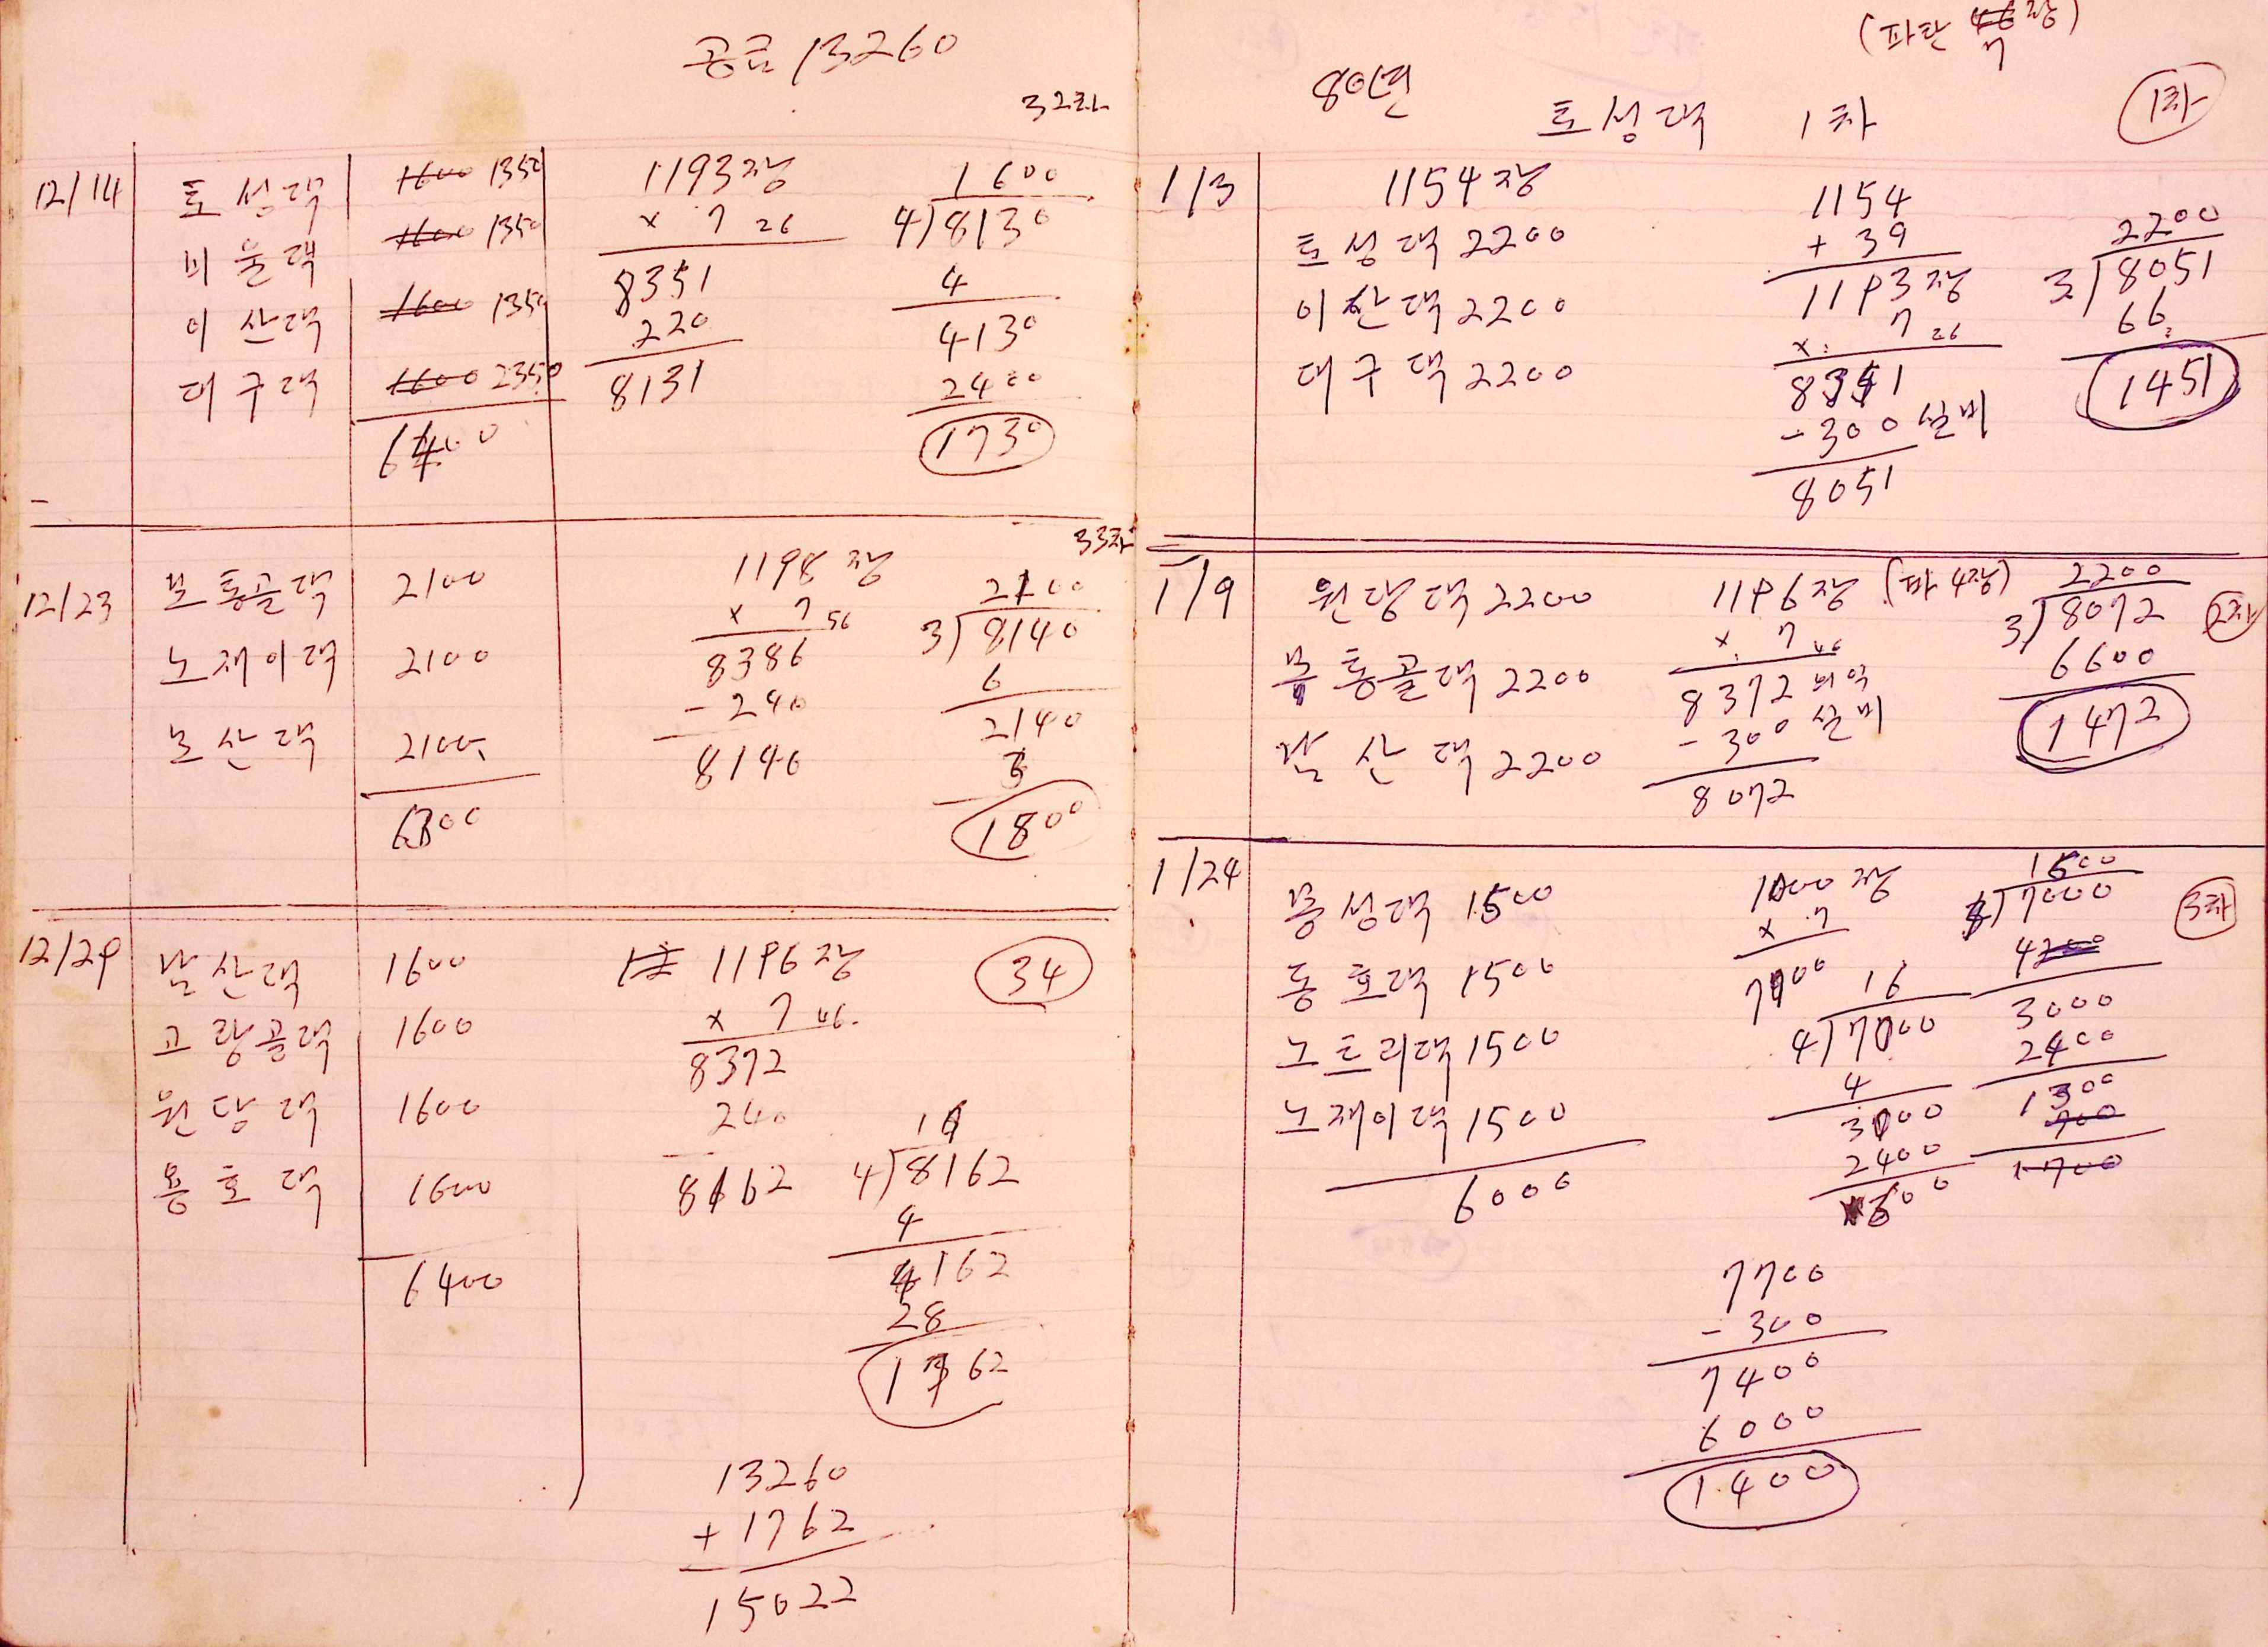 공금 13260
32차
12/14
토성댁 1600 1350
비울댁 1600 1350
이산댁 1600 1350
대구댁 1600 2350
6400
1193장
× 7 26
8351
220
8131
1600
4)8130
4
4130
2400
1730
33차
12/23
보통골댁 2100
노재이댁 2100
노산댁 2100
6300
1198장
× 7 56
8386
- 240
8146
2100
3)8140
6
2140
3
1800
12/29
남산댁 1600
고랑골댁 1600
원당댁 1600
용호댁 1600
6400
1196장
× 7 46
8372
240
8162
34
16
4)8162
4
4162
28
1762
13260
+ 1762
15022
(파탄 장)
7
80년
토성댁 1차
1차
1/3
1154장
토성댁 2200
이산댁 2200
대구댁 2200
1154
+ 39
1193장
× 7 26
8351
- 300 실비
8051
2200
3)8051
66
1451
1/9
원당댁 2200
봉통골댁 2200
남산댁 2200
1196장 (파 4장)
× 7 46
8372
- 300 실비
8072
2200
3)8072
6600
1472
2차
1/24
봉성댁 1500
동호댁 1500
노트리댁 1500
노재이댁 1500
6000
1000장
× 7
7000
16
4)7000
4
3000
2400
600
1500
)7000
4200
3000
2400
1300
700
1700
3차
7700
- 300
7400
6000
1400